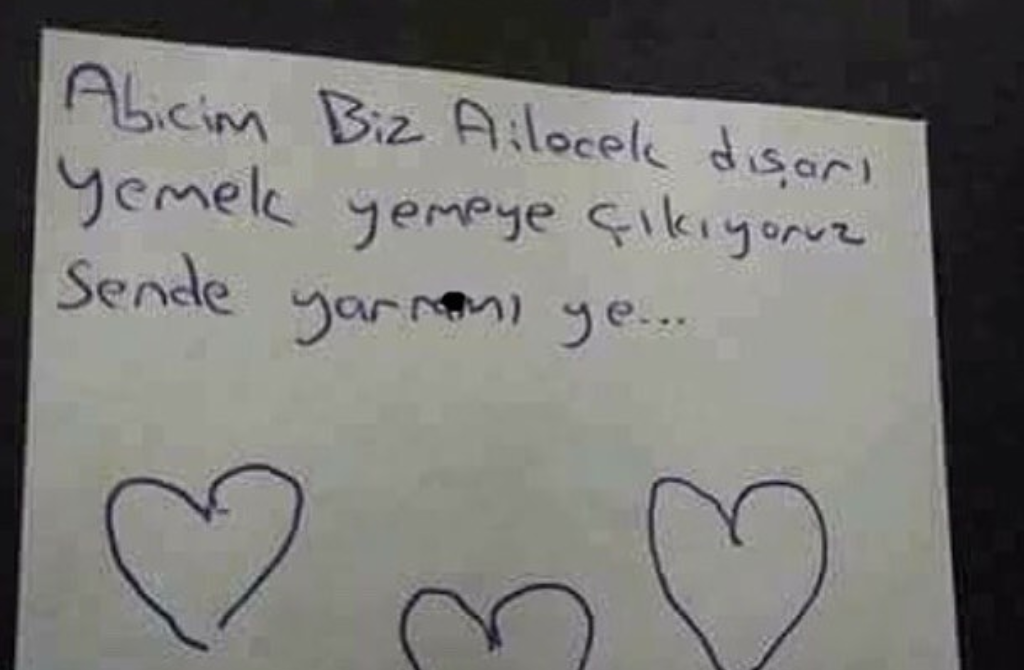 Abicim Biz Ailecek dışarı
yemek yemeye çıkıyoruz
Sende ye...